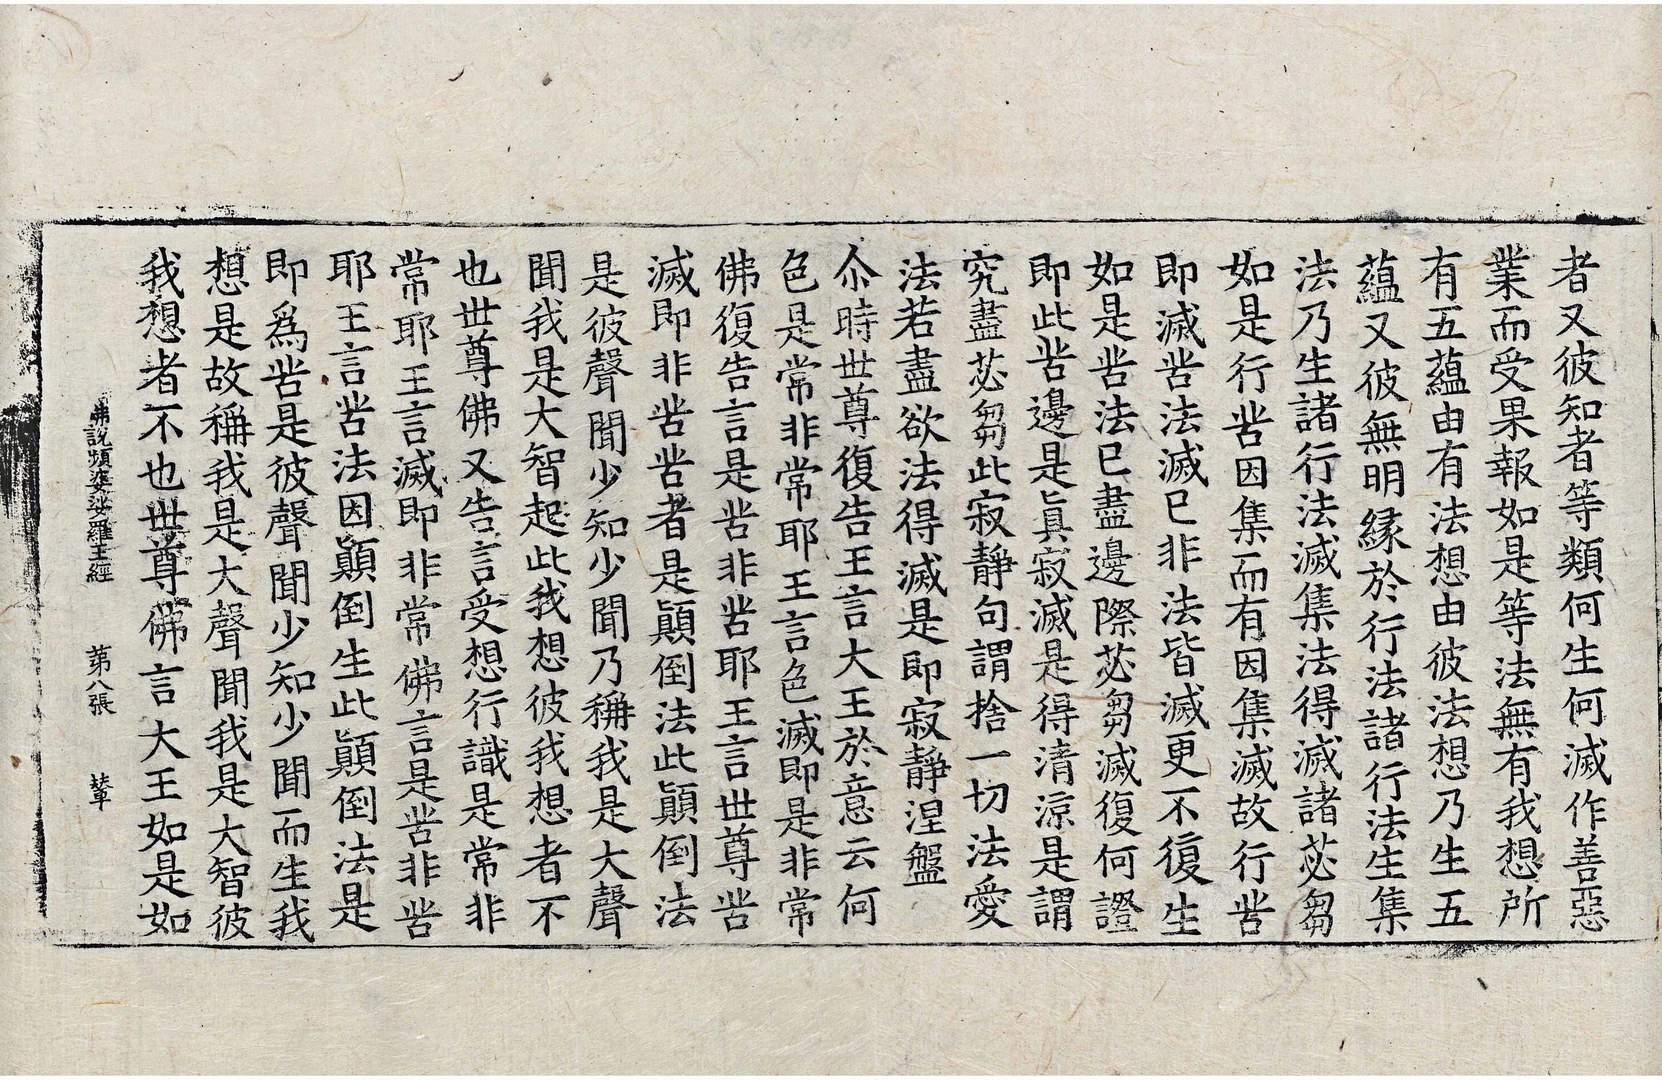 者又彼知者等類何生何滅作善惡
業而受果報如是等法無有我想所
有五蘊由有法想由彼法想乃生五
蘊又彼無明緣於行法諸行法生集
法乃生諸行法滅集法得滅諸苾芻
如是行苦因集而有因集滅故行苦
即滅苦法滅已非法皆滅更不復生
如是苦法已盡邊際苾芻滅復何證
即此苦邊是眞寂滅是得清涼是謂
究盡苾芻此寂靜句謂捨一切法愛
法若盡欲法得滅是即寂靜涅盤
尒時世尊復告王言大王於意云何
色是常非常耶王言色滅即是非常
佛復告言是苦非苦耶王言世尊苦
滅即非苦苦者是顚倒法此顚倒法
是彼聲聞少知少聞乃稱我是大聲
聞我是大智起此我想彼我想者不
也世尊佛又告言受想行識是常非
常耶王言滅即非常佛言是苦非苦
耶王言苦法因顚倒生此顚倒法是
即爲苦是彼聲聞少知少聞而生我
想是故稱我是大聲聞我是大智彼
我想者不也世尊佛言大王如是如
佛說頻婆娑羅王經 第八張 輦